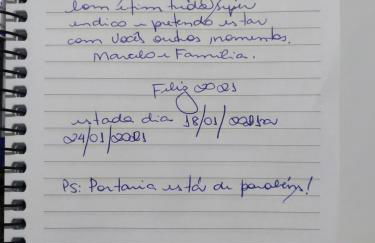 bom e fim tudo super
indico e pretendo estar
com vocês outros momentos.
Marcelo e Família.
Feliz 2021
estada dia 18/01/2021 a
24/01/2021
PS: Portaria está de parabéns!